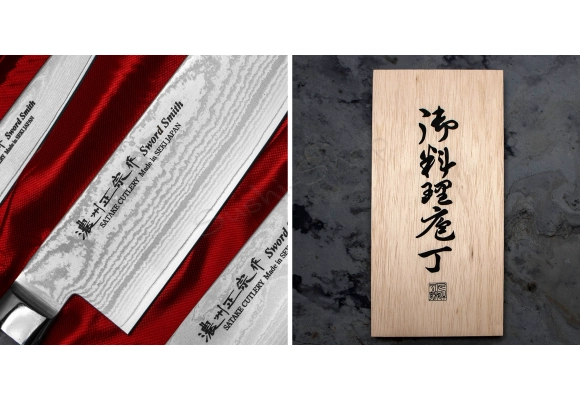 Sword Smith
Made in SEKI JAPAN
濃州正宗作 Sword Smith
SATAKE CUTLERY Made in SEKI JAPAN
濃州正宗作 Sword Smith
SATAKE CUTLERY Made in SEKI
御料理庖丁